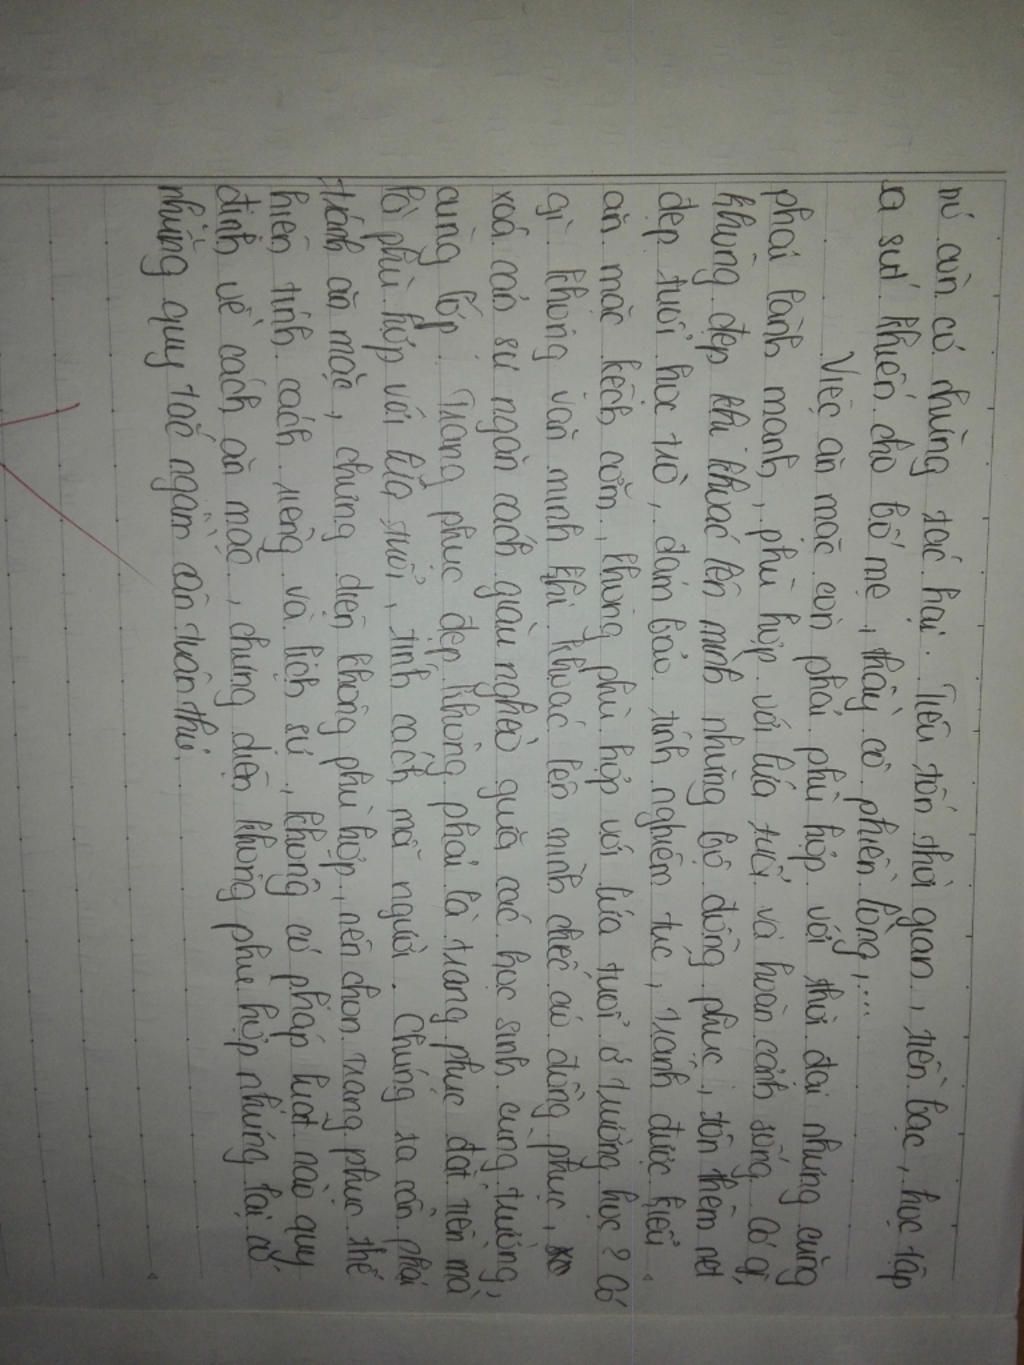 nó còn có những tác hại. Tiêu tốn thời gian, tiền bạc, học tập
sa sút khiến cho bố mẹ, thầy cô phiền lòng,...
Việc ăn mặc còn phải phù hợp với thời đại nhưng cũng
phải lành mạnh, phù hợp với lứa tuổi và hoàn cảnh sống. Có gì
không đẹp khi khoác lên mình những bộ đồng phục, tôn thêm nét
đẹp tuổi học trò, đảm bảo tính nghiêm túc, tránh được kiểu
ăn mặc kệch cỡm, không phù hợp với lứa tuổi ở trường học? Có
gì không văn minh khi khoác lên mình chiếc áo đồng phục,
xoá căn sự ngăn cách giàu nghèo giữa các học sinh cùng trường,
cùng lớp. Trang phục đẹp không phải là trang phục đắt tiền mà
là phù hợp với lứa tuổi, tính cách mỗi người. Chúng ta cần phải
tránh ăn mặc, chưng diện không phù hợp, nên chọn trang phục thể
hiện tính cách riêng và lịch sự, không có pháp luật nào quy
định về cách ăn mặc, chưng diện không phù hợp nhưng lại có
những quy tắc ngầm cần tuân thủ.